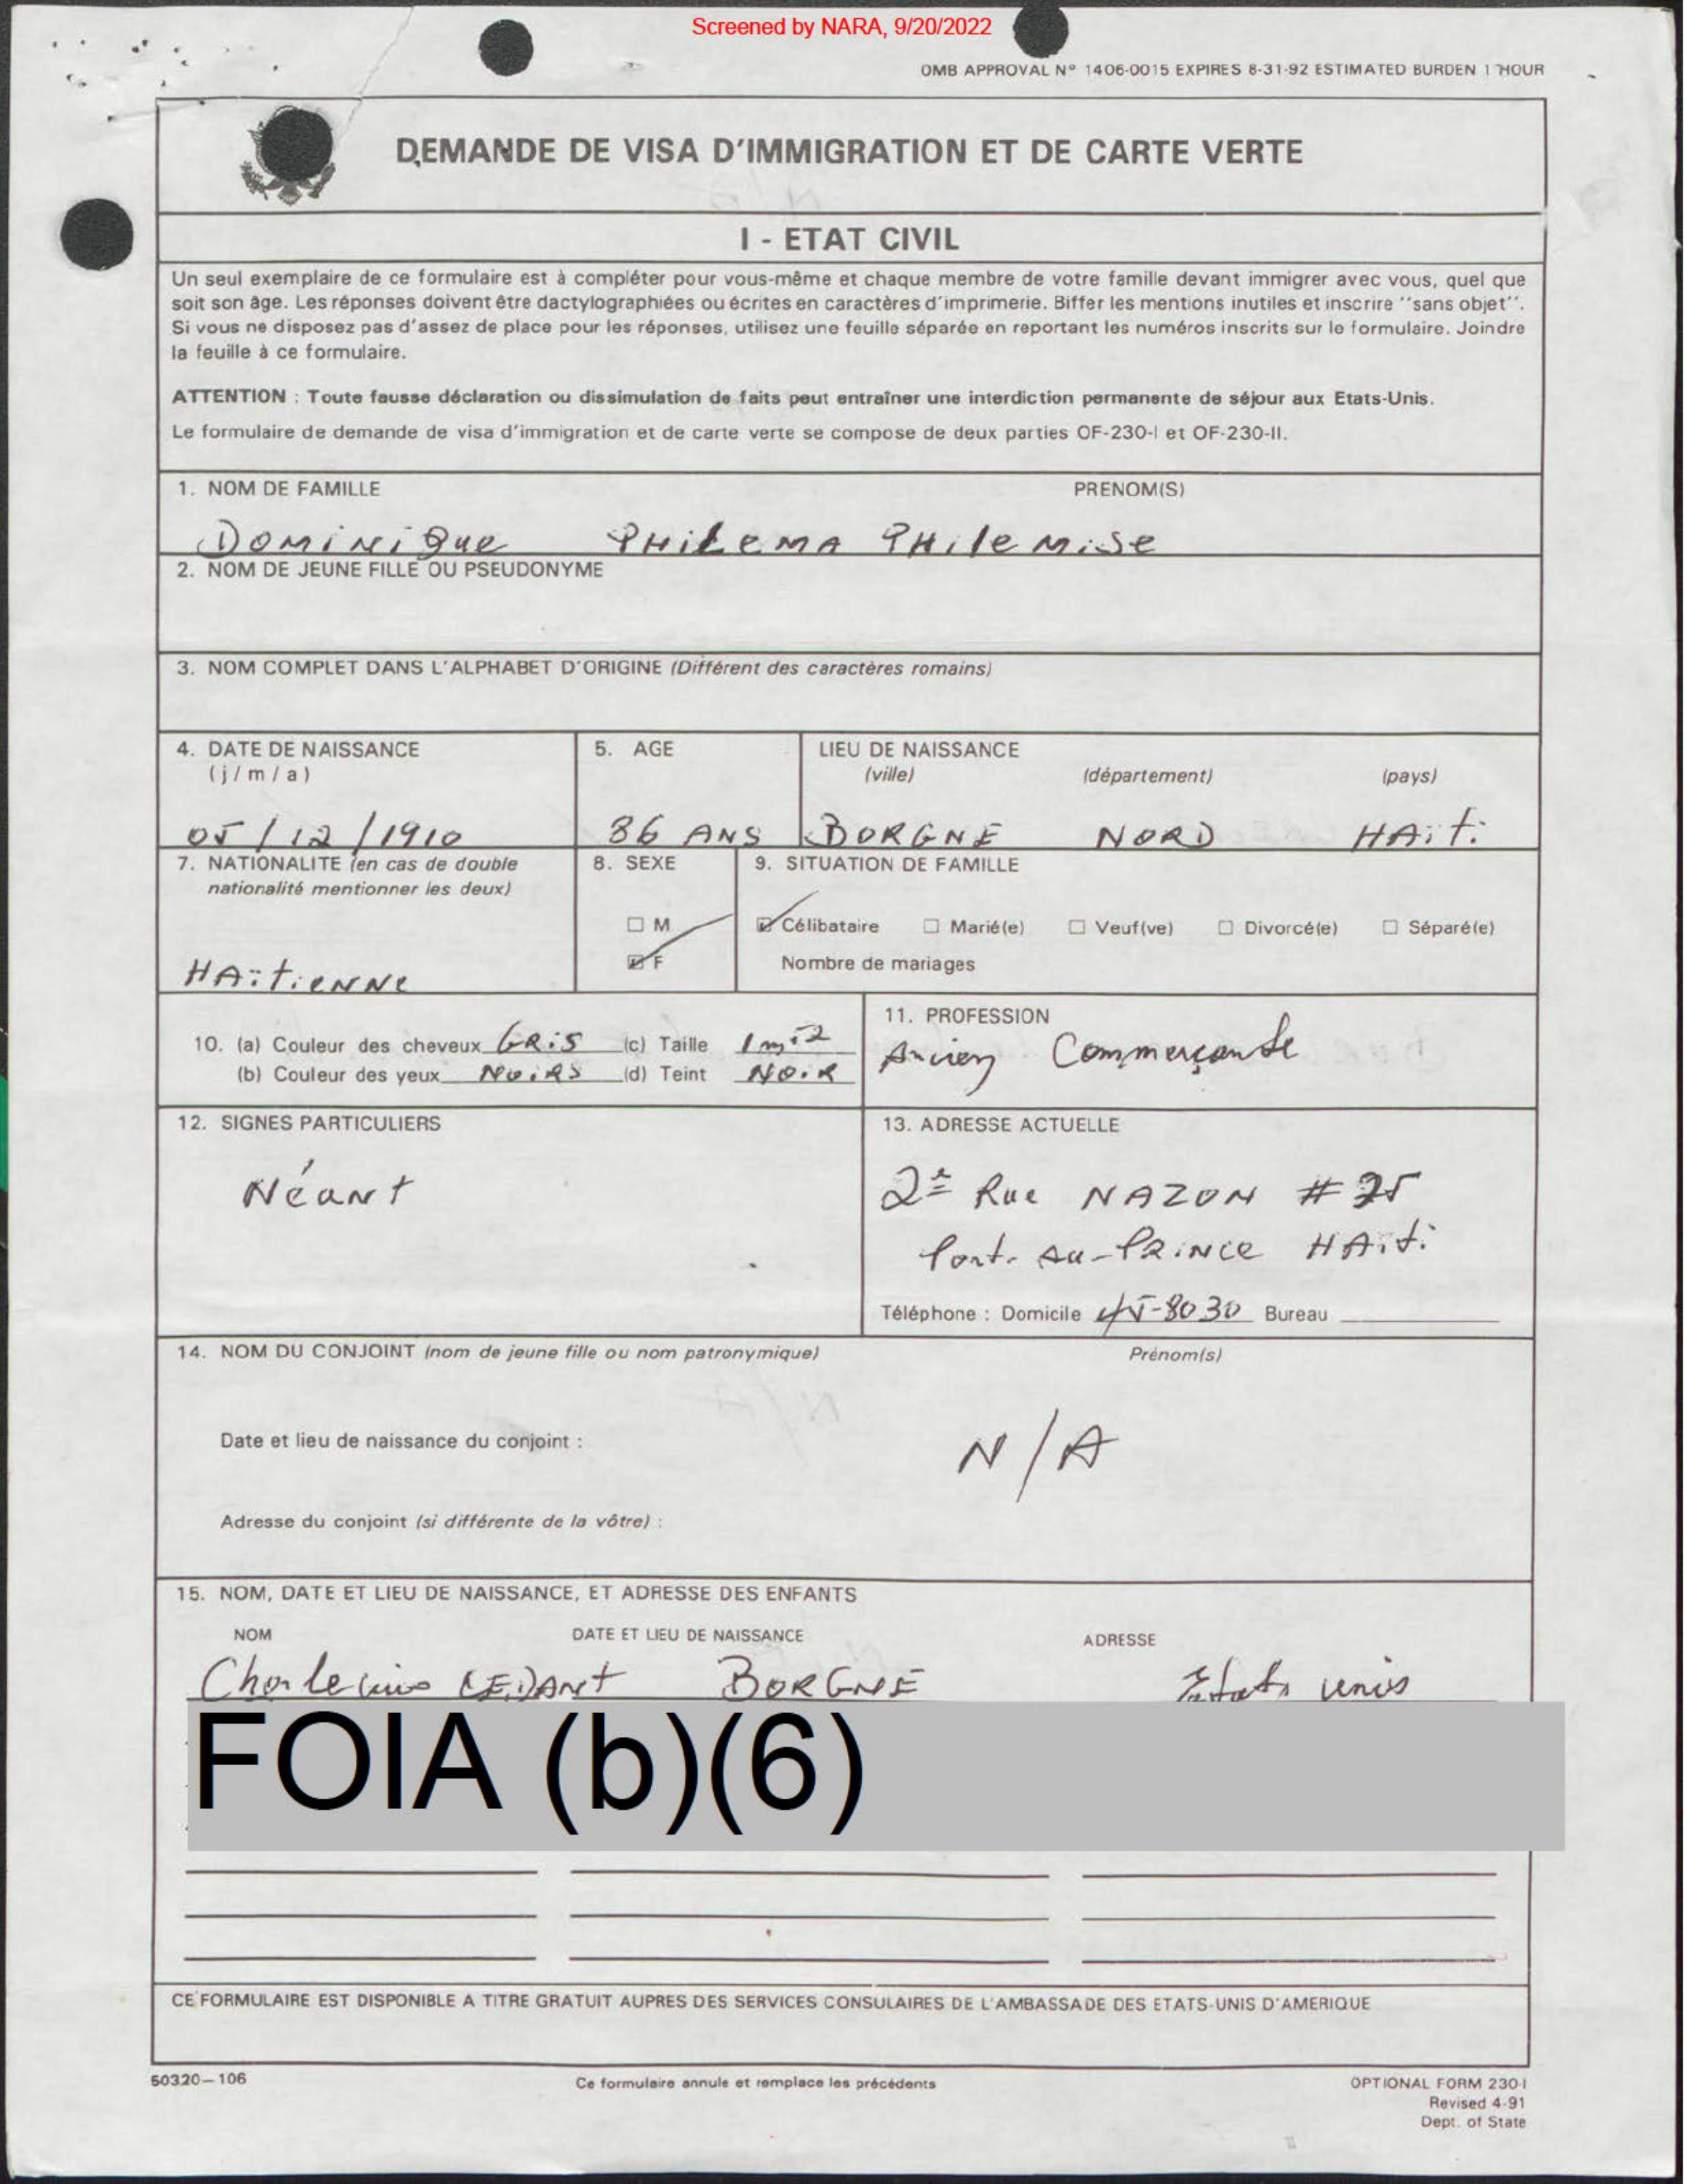 Screened by NARA, 9/20/2022
OMB APPROVAL N° 1406-0015 EXPIRES 8-31-92 ESTIMATED BURDEN 1 HOUR
DEMANDE DE VISA D'IMMIGRATION ET DE CARTE VERTE
I - ETAT CIVIL
Un seul exemplaire de ce formulaire est à compléter pour vous-même et chaque membre de votre famille devant immigrer avec vous, quel que
soit son âge. Les réponses doivent être dactylographiées ou écrites en caractères d'imprimerie. Biffer les mentions inutiles et inscrire ''sans objet''.
Si vous ne disposez pas d'assez de place pour les réponses, utilisez une feuille séparée en reportant les numéros inscrits sur le formulaire. Joindre
la feuille à ce formulaire.
ATTENTION : Toute fausse déclaration ou dissimulation de faits peut entraîner une interdiction permanente de séjour aux Etats-Unis.
Le formulaire de demande de visa d'immigration et de carte verte se compose de deux parties OF-230-I et OF-230-II.
1. NOM DE FAMILLE PRENOM(S)
Dominique PHILEMA PHILEMISE
2. NOM DE JEUNE FILLE OU PSEUDONYME
3. NOM COMPLET DANS L'ALPHABET D'ORIGINE (Différent des caractères romains)
4. DATE DE NAISSANCE 5. AGE LIEU DE NAISSANCE
(j/m/a) (ville) (département) (pays)
05/12/1910 86 ANS BORGNE NORD HAïti
7. NATIONALITE (en cas de double 8. SEXE 9. SITUATION DE FAMILLE
nationalité mentionner les deux)
M Célibataire Marié(e) Veuf(ve) Divorcé(e) Séparé(e)
F Nombre de mariages
HAïtienne
11. PROFESSION
10. (a) Couleur des cheveux GRIS (c) Taille
Ancien Commerçante
(b) Couleur des yeux NOIRS (d) Teint NOIR
12. SIGNES PARTICULIERS 13. ADRESSE ACTUELLE
Néant 2è Rue NAZON #
Port-Au-PRINCE HAïti
Téléphone : Domicile 45-8030 Bureau
14. NOM DU CONJOINT (nom de jeune fille ou nom patronymique) Prénom(s)
Date et lieu de naissance du conjoint : N/A
Adresse du conjoint (si différente de la vôtre) :
15. NOM, DATE ET LIEU DE NAISSANCE, ET ADRESSE DES ENFANTS
NOM DATE ET LIEU DE NAISSANCE ADRESSE
BORGNE Etats unis
FOIA (b)(6)
CE FORMULAIRE EST DISPONIBLE A TITRE GRATUIT AUPRES DES SERVICES CONSULAIRES DE L'AMBASSADE DES ETATS-UNIS D'AMERIQUE
50320-106 Ce formulaire annule et remplace les précédents OPTIONAL FORM 230-I
Revised 4-91
Dept. of State